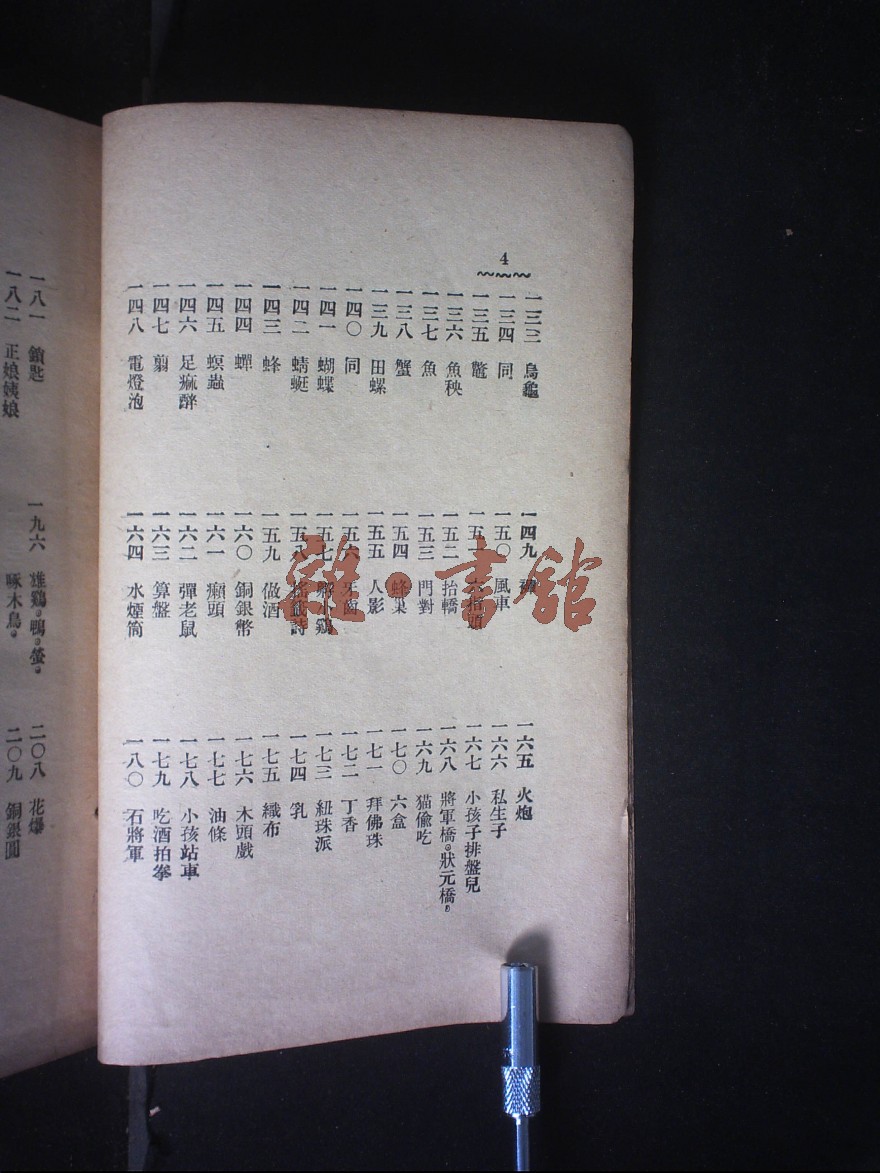 4
一三三 烏龜
一三四 同
一三五 鼈
一三六 魚秧
一三七 魚
一三八 蟹
一三九 田螺
一四〇 同
一四一 蝴蝶
一四二 蜻蜓
一四三 蜂
一四四 蟬
一四五 螟蟲
一四六 足痲醉
一四七 翦
一四八 電燈泡
一四九
一五〇 風車
一五一
一五二 抬轎
一五三 門對
一五四 蜂巢
一五五 人影
一五六 牙齒
一五七 孵小鷄
一五八 搖籤詩
一五九 做酒
一六〇 銅銀幣
一六一 癩頭
一六二 彈老鼠
一六三 算盤
一六四 水煙筒
一六五 火炮
一六六 私生子
一六七 小孩子排盤兒
一六八 將軍橋。狀元橋。
一六九 猫偷吃
一七〇 六盒
一七一 拜佛珠
一七二 丁香
一七三 紐珠派
一七四 乳
一七五 織布
一七六 木頭戲
一七七 油條
一七八 小孩站車
一七九 吃酒拍拳
一八〇 石將軍
一八一 鎖匙
一八二 正娘姨娘
一九六 雄鷄。鴨。螢。
啄木鳥。
二〇八 花爆
二〇九 銅銀圓
雜·書館